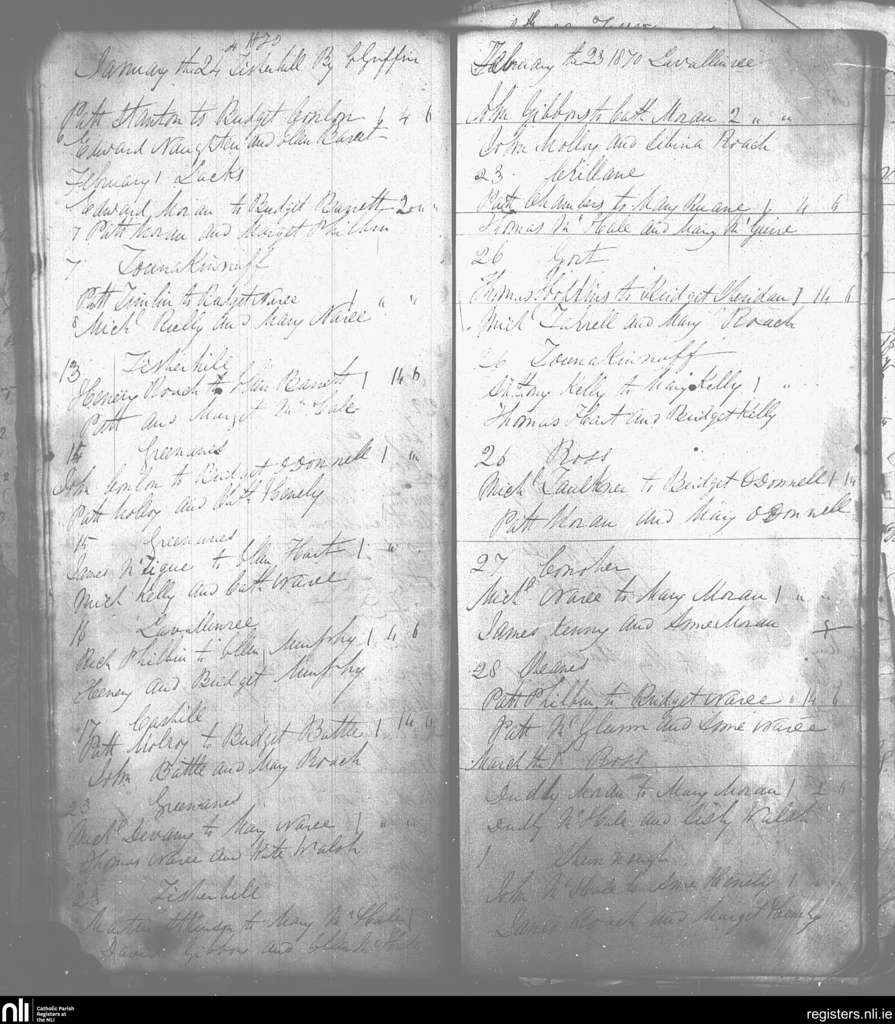 1870
January the 24 Fisherhill By Griffin
Patt Stanton to Bridget Conlon 1 4 6
Edward Naughten and Ellen Barrett
February 1 Lacks
Edward Moran to Bridget Barrett 2 " "
7 Patt Moran and Marget Philbin
7 Tounakinnuff
Patt Timlin to Bridget Waree 1 " "
8 Mich Reilly and Mary Waree
13 Fisherhill
Henery Roach to Ellen Barrett 1 14 6
Patt and Marget McHale
15 Greenanes
John Conlon to Bridget ODonnell 1 " "
Patt Molloy and Cath Henely
15 Greenanes
James McTigue to Ellen Harte 1 " "
Mich Kelly and Cath Waree
16 Lavallinree
Rich Philbin to Ellen Murphy 1 4 6
Henery and Bridget Murphy
17 Cashill
Patt Molloy to Bridget Battle 1 14 6
John Battle and Mary Roach
23 Greenanes
Michl Devany to Mary Waree 1 " "
Thomas Waree and Kate Walsh
23 Fisherhill
to Mary McHale 1
David Gibbon and Ellen McHale
February the 23 1870 Lavallinree
John Gibbons to Cath Moran 2 " "
John Molloy and Sibina Roach
23 Crillane
Patt Chambers to Mary Ruane 1 4 6
Thomas McHale and Mary McGuire
26 Gort
Thomas Hopkins to Bridget Sheridan 1 14 6
Michl Furrell and Mary Roach
26 Tounakinnuff
Anthony Kelly to Mary Kelly 1 "
Thomas Hart and Bridget Kelly
26 Ross
Michl Faulkner to Bridget ODonnell 1 14
Patt Moran and Mary ODonnell
27 Conoher
Michl Waree to Mary Moran 1 " "
James Kenny and Some Moran
28
Patt Philbin to Bridget Waree " 14 6
Patt McGlunn and Some Waree
March the 1 Ross
Duddy Moran to Mary Moran 1 2 6
Duddy McHale and Walsh
1
John McHale to Henely 1 " "
James Roach and Marget Henely
nli
Catholic Parish
Registers at
the NLI
registers.nli.ie